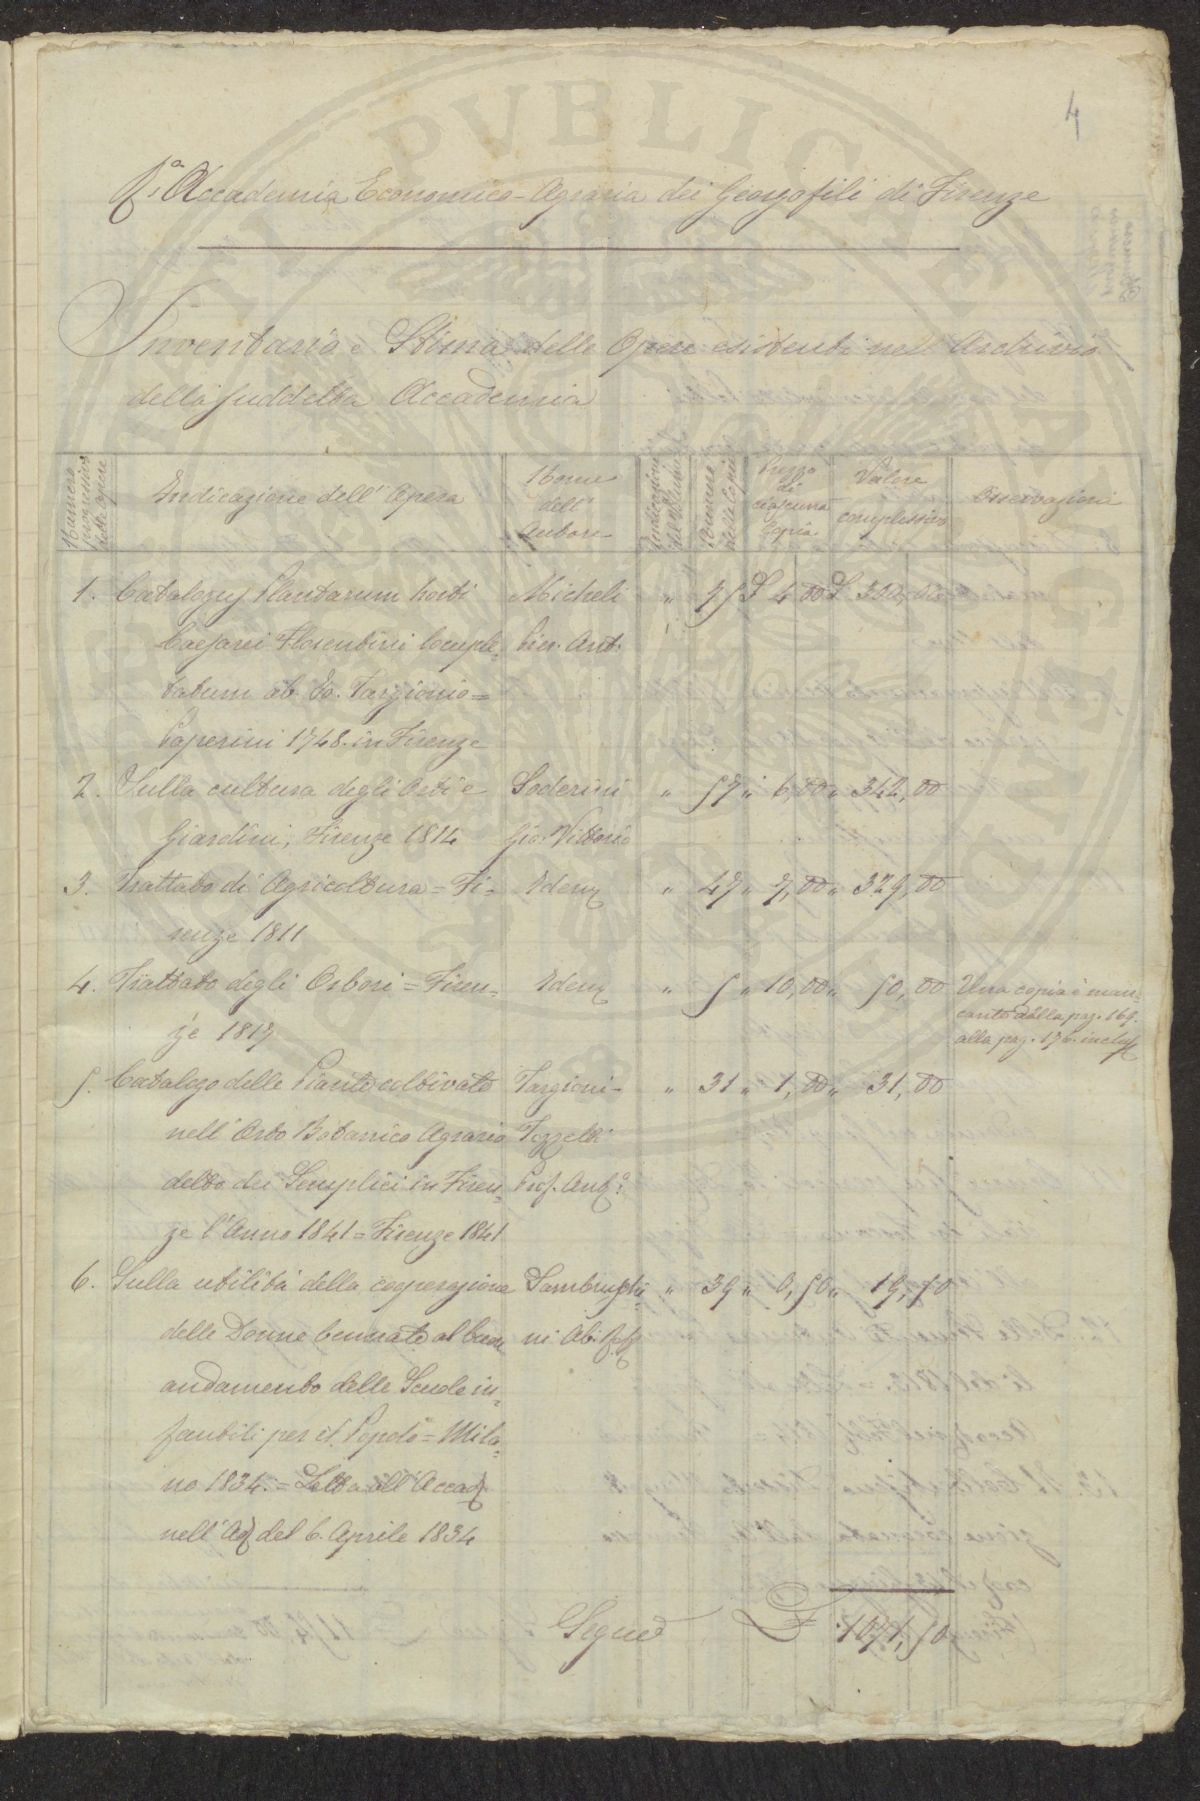 4
R.ª Accademia Economico-Agraria dei Georgofili di Firenze
Inventario e Stima delle Opere esistenti nell'Archivio
della suddetta Accademia
Numero progressivo delle Opere | Indicazione dell'Opera | Nome dell'Autore | Indicazione del Volume | Numero delle Copie | Prezzo di ciascuna Copia | Valore complessivo | Osservazioni
1. Catalogus Plantarum horti Micheli " 75 £ 4,00 £ 300,00
Caesarei Florentini locuple= Pier. Ant.
tatum ab. Io. Targionio=
Paperini 1748. in Firenze
2. Sulla cultura degli Orti e Soderini " 57 " 6,00 " 342,00
Giardini, Firenze 1814 Gio. Vittorio
3. Trattato di Agricoltura = Fi- Idem " 47 " 7,00 " 329,00
renze 1811
4. Trattato degli Arbori = Firen- Idem " 5 " 10,00 " 50,00 Una copia è man-
cante dalla pag. 169.
alla pag. 176. inclus.
ze 1817
5. Catalogo delle Piante coltivate Targioni- " 31 " 1,00 " 31,00
nell'Orto Botanico Agrario Tozzetti
detto dei Semplici in Firen- Prof. Ant.º
ze l'Anno 1841 = Firenze 1841
6. Sulla utilità della cooperazione Lambruschi= " 39 " 0,50 " 19,50
delle Donne bennate al buon ni Ab. Raff.
andamento delle Scuole in-
fantili per il Popolo = Mila-
no 1834. = Letta all'Accad.
nell'Ad. del 6. Aprile 1834
Segue £ 1071,50